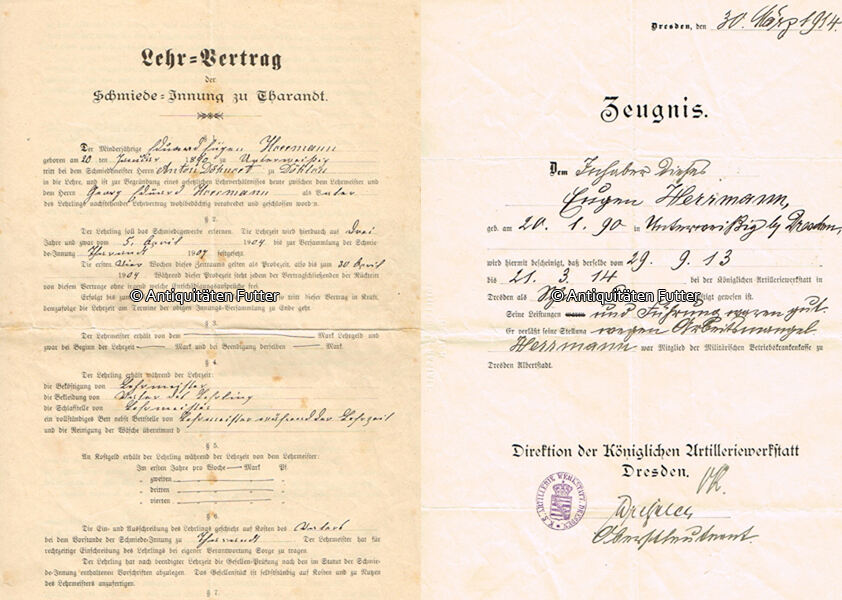 Lehr=Vertrag
der
Schmiede=Innung zu Tharandt.
Der Minderjährige Eduard Eugen Herrmann
geboren am 20 ten Januar 1890 zu Unterweißig
tritt bei dem Schmiedemeister Herrn Anton zu Döhlen
in die Lehre, und ist zur Begründung eines gesetzlichen Lehrverhältnisses heute zwischen dem Lehrmeister und
dem Herrn Georg Eduard Herrmann als Vater
des Lehrlings nachstehender Lehrvertrag wohlbedächtig verabredet und geschlossen worden.
§ 2.
Der Lehrling soll das Schmiedegewerbe erlernen. Die Lehrzeit wird hierdurch auf Drei
Jahre und zwar vom 5. April 1904 bis zur Versammlung der Schmie-
de-Innung Tharandt 1907 festgesetzt.
Die ersten Wochen dieses Zeitraums gelten als Probezeit, also bis zum 30 April
1904. Während dieser Probezeit steht jedem der Vertragschließenden der Rücktritt
von diesem Vertrage ohne irgend welche Entschädigungsansprüche frei.
Erfolgt bis zum tritt dieser Vertrag in Kraft,
demzufolge die Lehrzeit am Termine der obigen Innungs-Versammlung zu Ende geht.
§ 3.
Der Lehrmeister erhält von dem Mark Lehrgeld und
zwar bei Beginn der Lehrzeit — Mark und bei Beendigung derselben — Mark.
§ 4.
Der Lehrling erhält während der Lehrzeit:
die Beköstigung von Lehrmeister
die Bekleidung von Vater des Lehrling
die Schlafstelle von Lehrmeister
ein vollständiges Bett nebst Bettstelle von Lehrmeister während der Lehrzeit
und die Reinigung der Wäsche übernimmt d
§ 5.
An Kostgeld erhält der Lehrling während der Lehrzeit von dem Lehrmeister:
Im ersten Jahre pro Woche — Mark Pf.
„ zweiten „
„ dritten „
„ vierten „
§ 6.
Die Ein- und Ausschreibung des Lehrlings geschieht auf Kosten des Vaters
bei dem Vorstande der Schmiede-Innung zu Tharandt. Der Lehrmeister hat für
rechtzeitige Einschreibung des Lehrlings bei eigener Verantwortung Sorge zu tragen.
Der Lehrling hat nach beendigter Lehrzeit die Gesellen-Prüfung nach den im Statut der Schmie-
de-Innung enthaltenen Vorschriften abzulegen. Das Gesellenstück ist selbstständig auf Kosten und zu Nutzen
des Lehrmeisters anzufertigen.
§ 7.
© Antiquitäten Futter
Dresden, den 30. März 1914.
Zeugnis.
Dem Inhaber dieses
Eugen Herrmann,
geb. am 20. 1. 90 in Unterweißig b/ Dresden,
wird hiermit bescheinigt, daß derselbe vom 29. 9. 13
bis 21. 3. 14 bei der Königlichen Artilleriewerkstatt in
Dresden als gewesen ist.
© Antiquitäten Futter
Seine Leistungen und Führung waren gut.
Er verläßt seine Stellung wegen Arbeitsmangel.
Herrmann war Mitglied der Militärischen Betriebskrankenkasse zu
Dresden Albertstadt.
Direktion der Königlichen Artilleriewerkstatt
Dresden.
Oberstleutnant.
K. S. ARTILLERIE WERKSTATT. DRESDEN